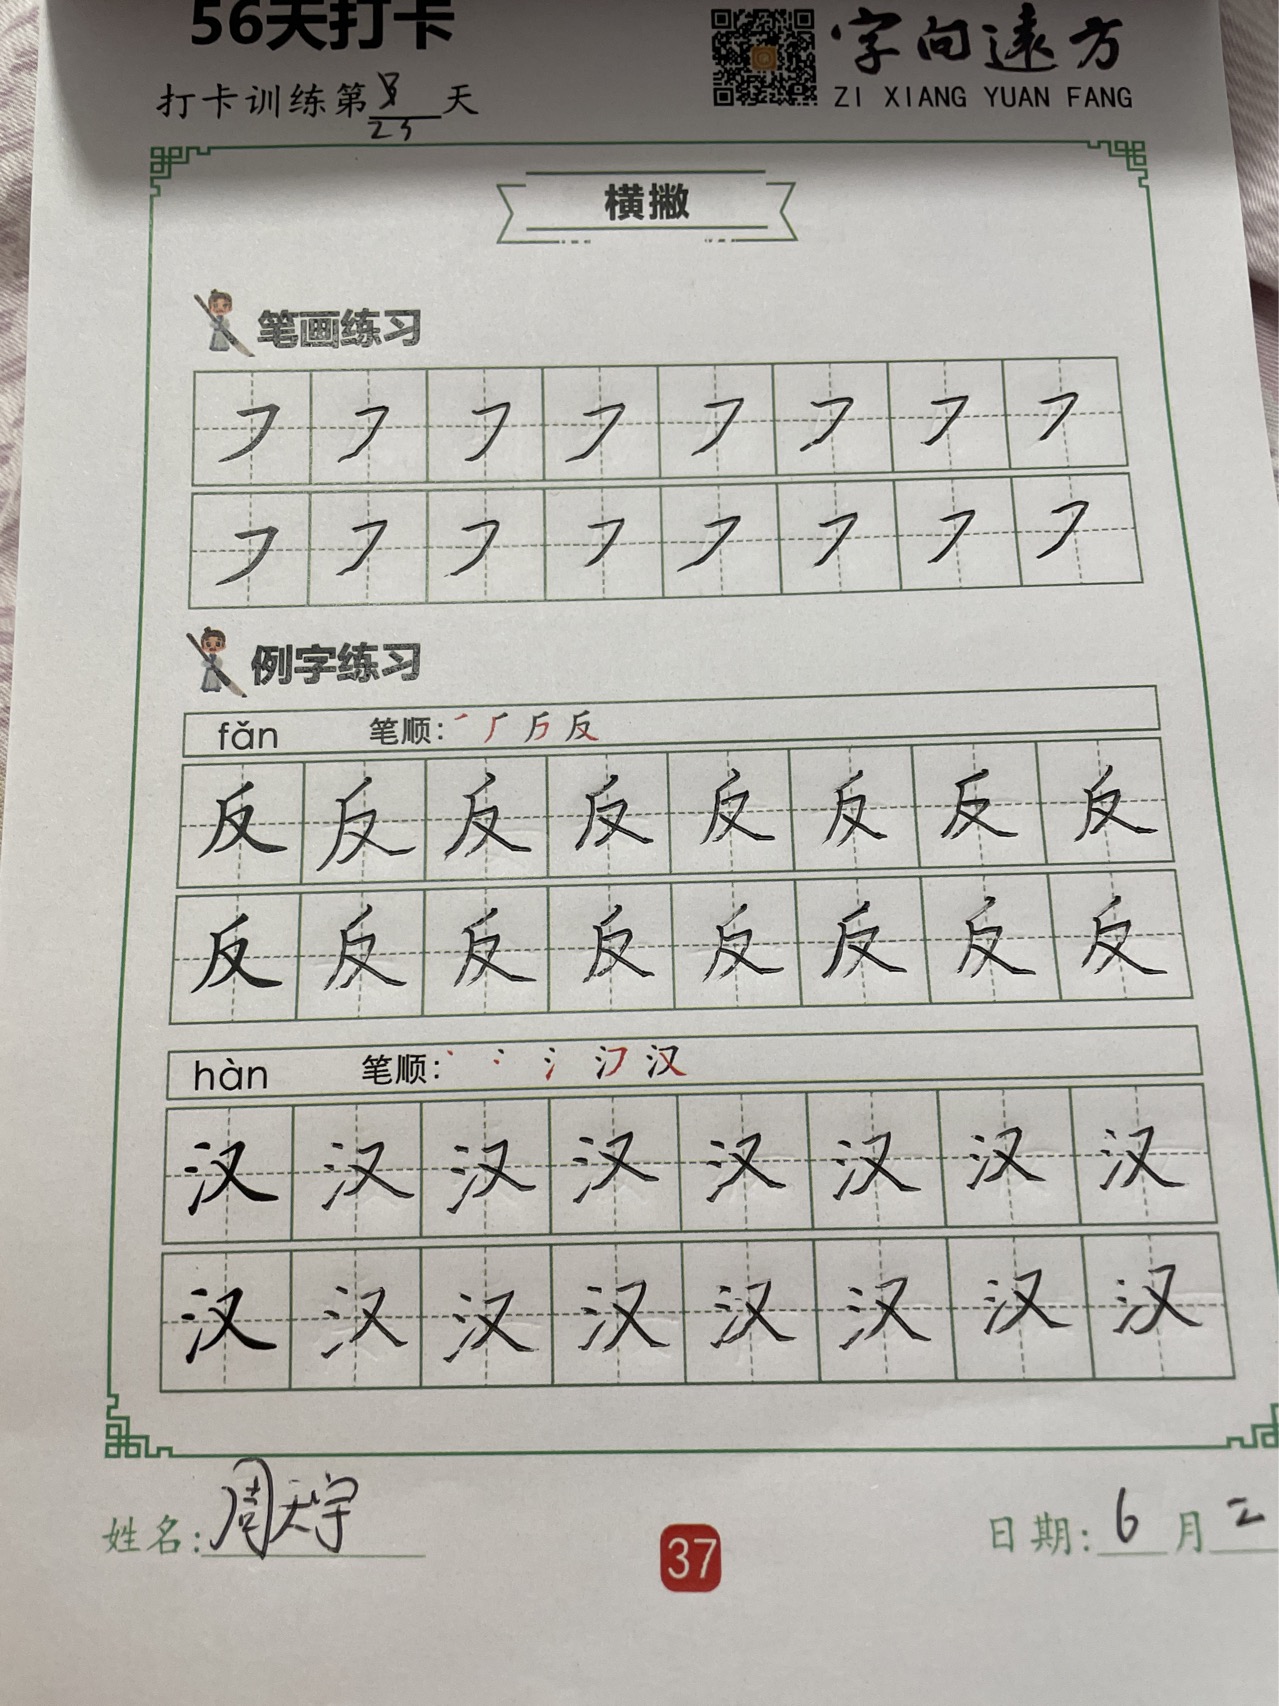 56天打卡
打卡训练第8天
23
字向遠方
ZI XIANG YUAN FANG
横撇
笔画练习
㇇ ㇇ ㇇ ㇇ ㇇ ㇇ ㇇ ㇇
㇇ ㇇ ㇇ ㇇ ㇇ ㇇ ㇇ ㇇
例字练习
fǎn 笔顺: 反
反 反 反 反 反 反 反 反
反 反 反 反 反 反 反 反
hàn 笔顺: 汉
汉 汉 汉 汉 汉 汉 汉 汉
汉 汉 汉 汉 汉 汉 汉 汉
姓名: 周天宇
37
日期: 6月